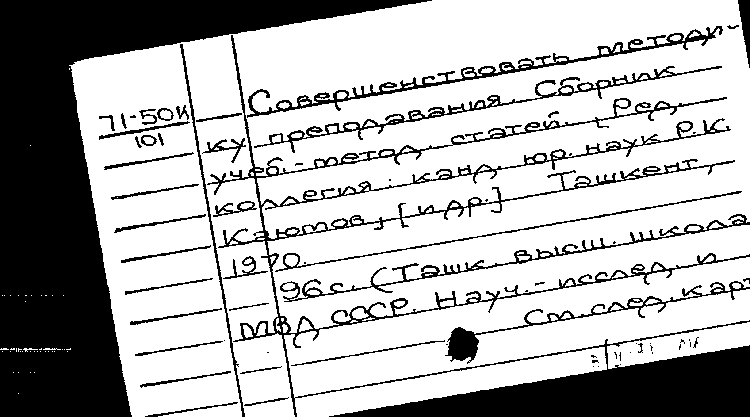 Совершенствовать методи-
71-50К
101
ку преподавания. Сборник
учеб.-метод. статей. [Ред.
коллегия: канд. юр. наук Р.К.
Каютов, [и др.] Ташкент,
1970.
96 с. (Ташк. высш. школа
МВД СССР. Науч.-исслед. и
См. след. карт